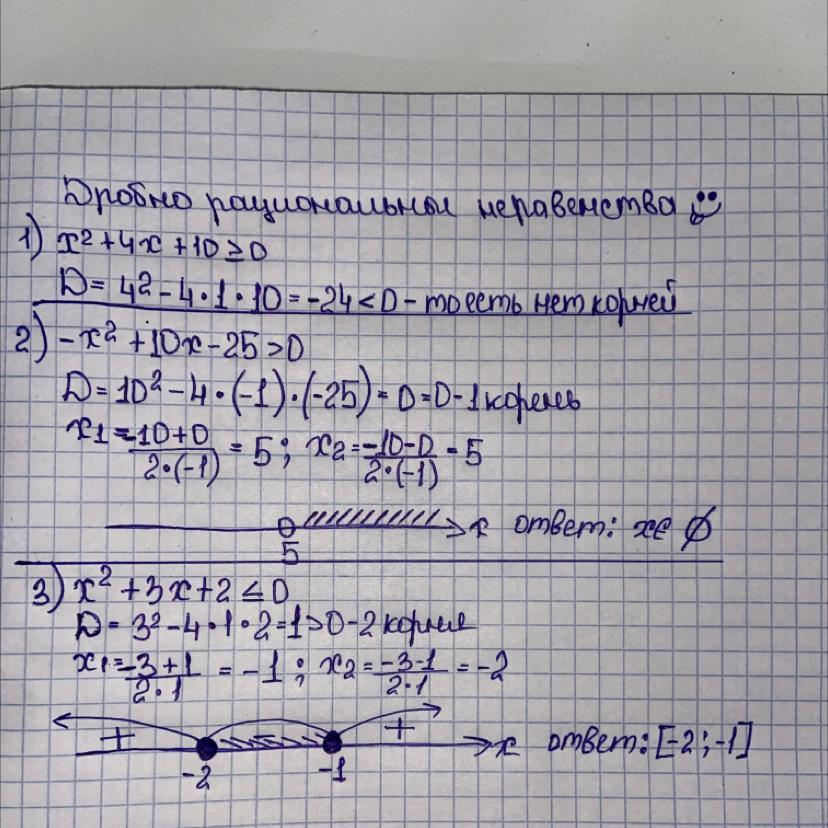 Дробно рациональные неравенства
1) x² + 4x + 10 ≥ 0
D = 4² - 4 • 1 • 10 = -24 < 0 - то есть нет корней
2) -x² + 10x - 25 > 0
D = 10² - 4 • (-1) • (-25) = 0 = 0 - 1 корень
x1 = -10+0 / 2•(-1) = 5; x2 = -10-0 / 2•(-1) = 5
5 x ответ: x∈ ∅
3) x² + 3x + 2 ≤ 0
D = 3² - 4 • 1 • 2 = 1 > 0 - 2 корня
x1 = -3+1 / 2•1 = -1; x2 = -3-1 / 2•1 = -2
+ - + x ответ: [-2; -1]
-2 -1